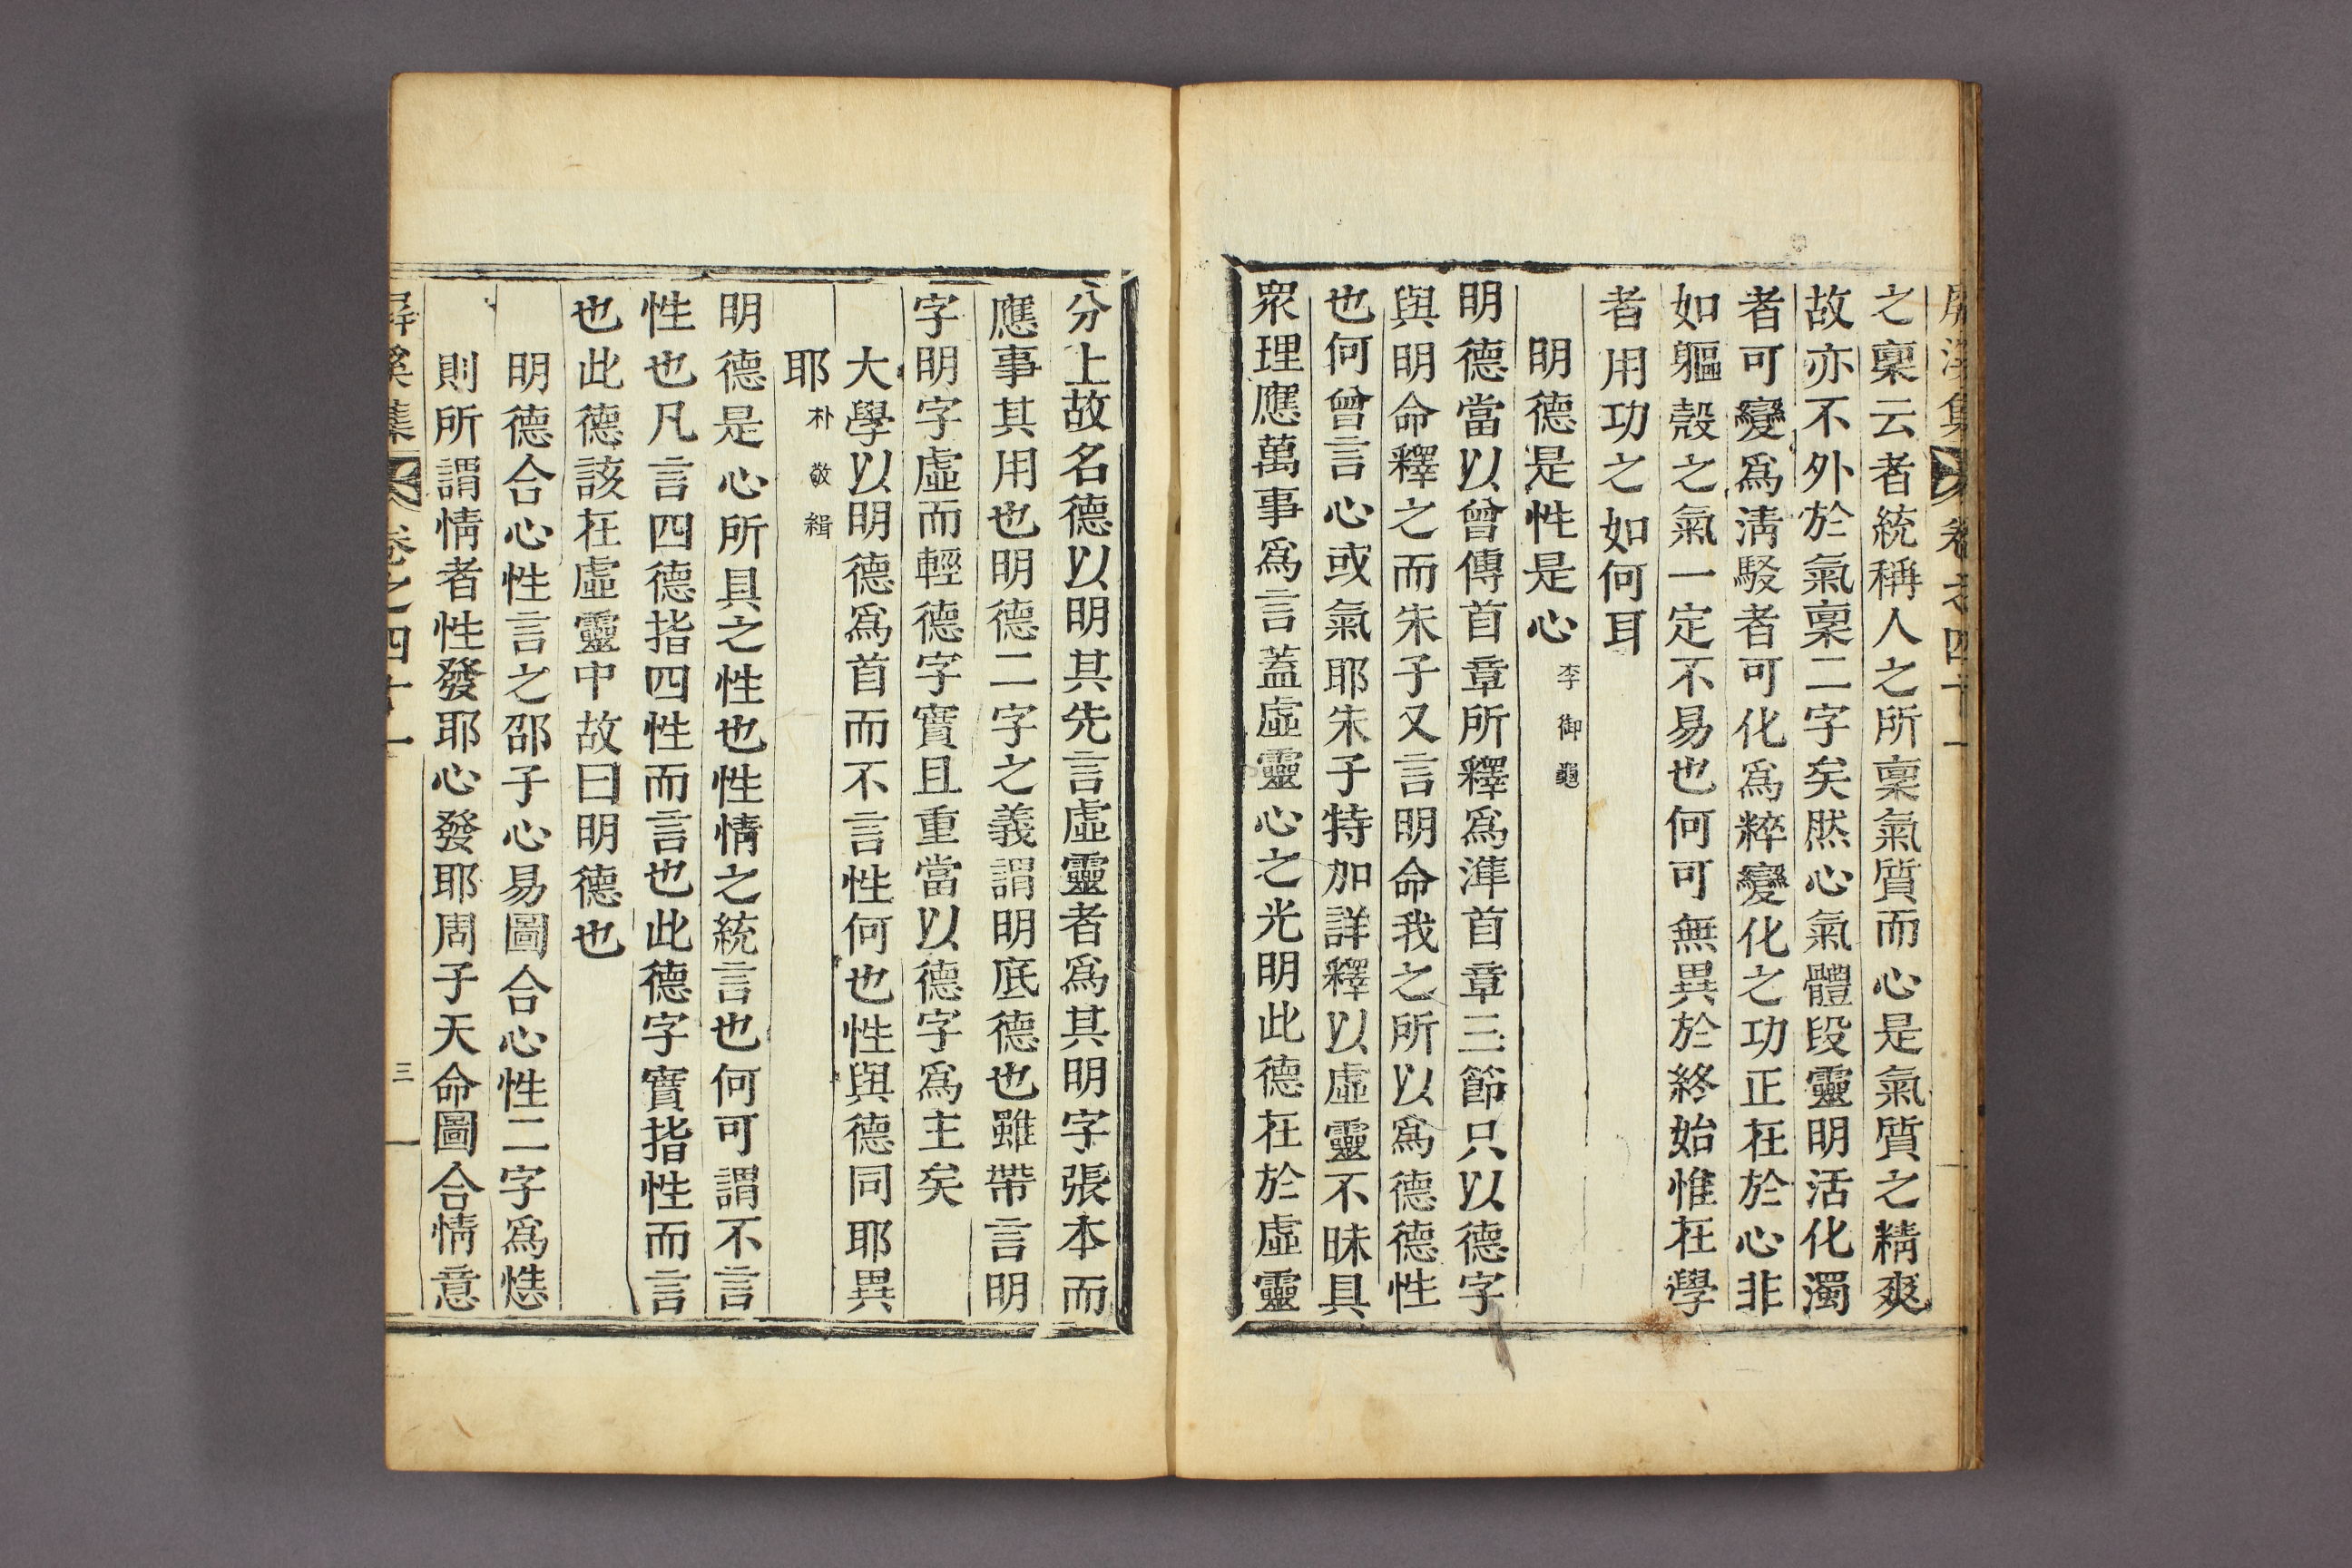 屛溪集 卷之四十一
之稟云者統稱人之所稟氣質而心是氣質之精爽
故亦不外於氣稟二字矣然心氣體段靈明活化濁
者可變爲淸駁者可化爲粹變化之功正在於心非
如軀殼之氣一定不易也何可無異於終始惟在學
者用功之如何耳
明德是性是心 李御龜
明德當以曾傳首章所釋爲準首章三節只以德字
與明命釋之而朱子又言明命我之所以爲德德性
也何曾言心或氣耶朱子特加詳釋以虛靈不昧具
衆理應萬事爲言蓋虛靈心之光明此德在於虛靈
分上故名德以明其先言虛靈者爲其明字張本而
應事其用也明德二字之義謂明底德也雖帶言明
字明字虛而輕德字實且重當以德字爲主矣
大學以明德爲首而不言性何也性與德同耶異
耶 朴敬緝
明德是心所具之性也性情之統言也何可謂不言
性也凡言四德指四性而言也此德字實指性而言
也此德該在虛靈中故曰明德也
明德合心性言之邵子心易圖合心性二字爲㦂
則所謂情者性發耶心發耶周子天命圖合情意
屛溪集 卷之四十一 三